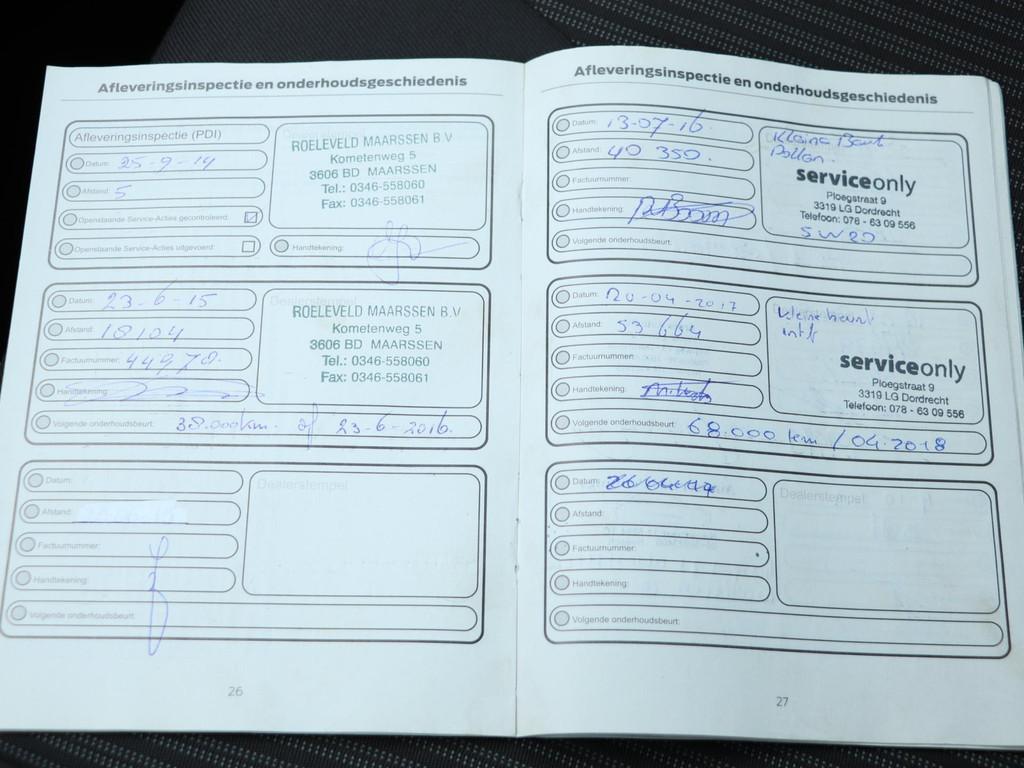 Afleveringsinspectie en onderhoudsgeschiedenis
Afleveringsinspectie (PDI)
Datum: 25-9-14
Afstand: 5
Openstaande Service-Acties gecontroleerd:
Openstaande Service-Acties uitgevoerd:
ROELEVELD MAARSSEN B.V
Kometenweg 5
3606 BD MAARSSEN
Tel.: 0346-558060
Fax: 0346-558061
Handtekening:
Datum: 23-6-15
Afstand: 18104
Factuurnummer: 449,70.
Handtekening:
Dealerstempel
ROELEVELD MAARSSEN B.V
Kometenweg 5
3606 BD MAARSSEN
Tel.: 0346-558060
Fax: 0346-558061
Volgende onderhoudsbeurt: 38.000km. of 23-6-2016.
Datum:
Afstand:
Factuurnummer:
Handtekening:
Dealerstempel
Volgende onderhoudsbeurt:
26
Afleveringsinspectie en onderhoudsgeschiedenis
Datum: 13-07-16.
Afstand: 40 350.
Factuurnummer:
Handtekening:
Kleine Beurt
Pollen.
serviceonly
Ploegstraat 9
3319 LG Dordrecht
Telefoon: 078 - 63 09 556
5W20
Volgende onderhoudsbeurt:
Datum: 20-04-2017
Afstand: 53 664
Factuurnummer:
Handtekening:
kleine beurt
serviceonly
Ploegstraat 9
3319 LG Dordrecht
Telefoon: 078 - 63 09 556
Volgende onderhoudsbeurt: 68.000 km / 04.2018
Datum:
Afstand:
Factuurnummer:
Handtekening:
Dealerstempel
Volgende onderhoudsbeurt:
27